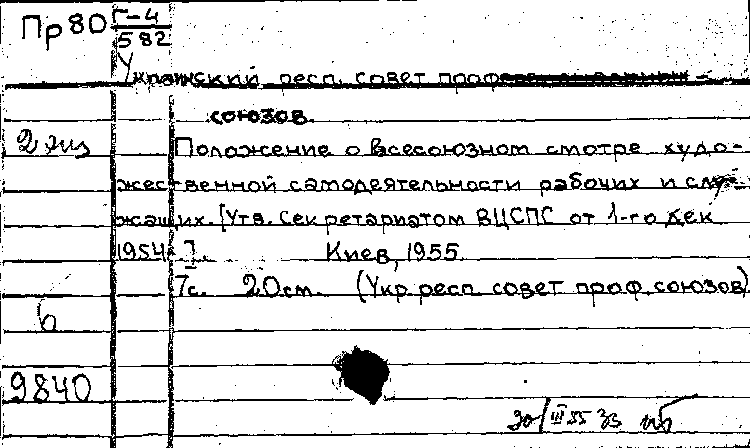 Пр80 Г-4
582
Украинский респ. совет проф-
союзов.
2 экз Положение о всесоюзном смотре худо-
жественной самодеятельности рабочих и слу-
жащих. [Утв. Секретариатом ВЦСПС от 1-го дек
1954 г.]. Киев, 1955.
7с. 20см. (Укр. респ. совет проф. союзов)
6
9840